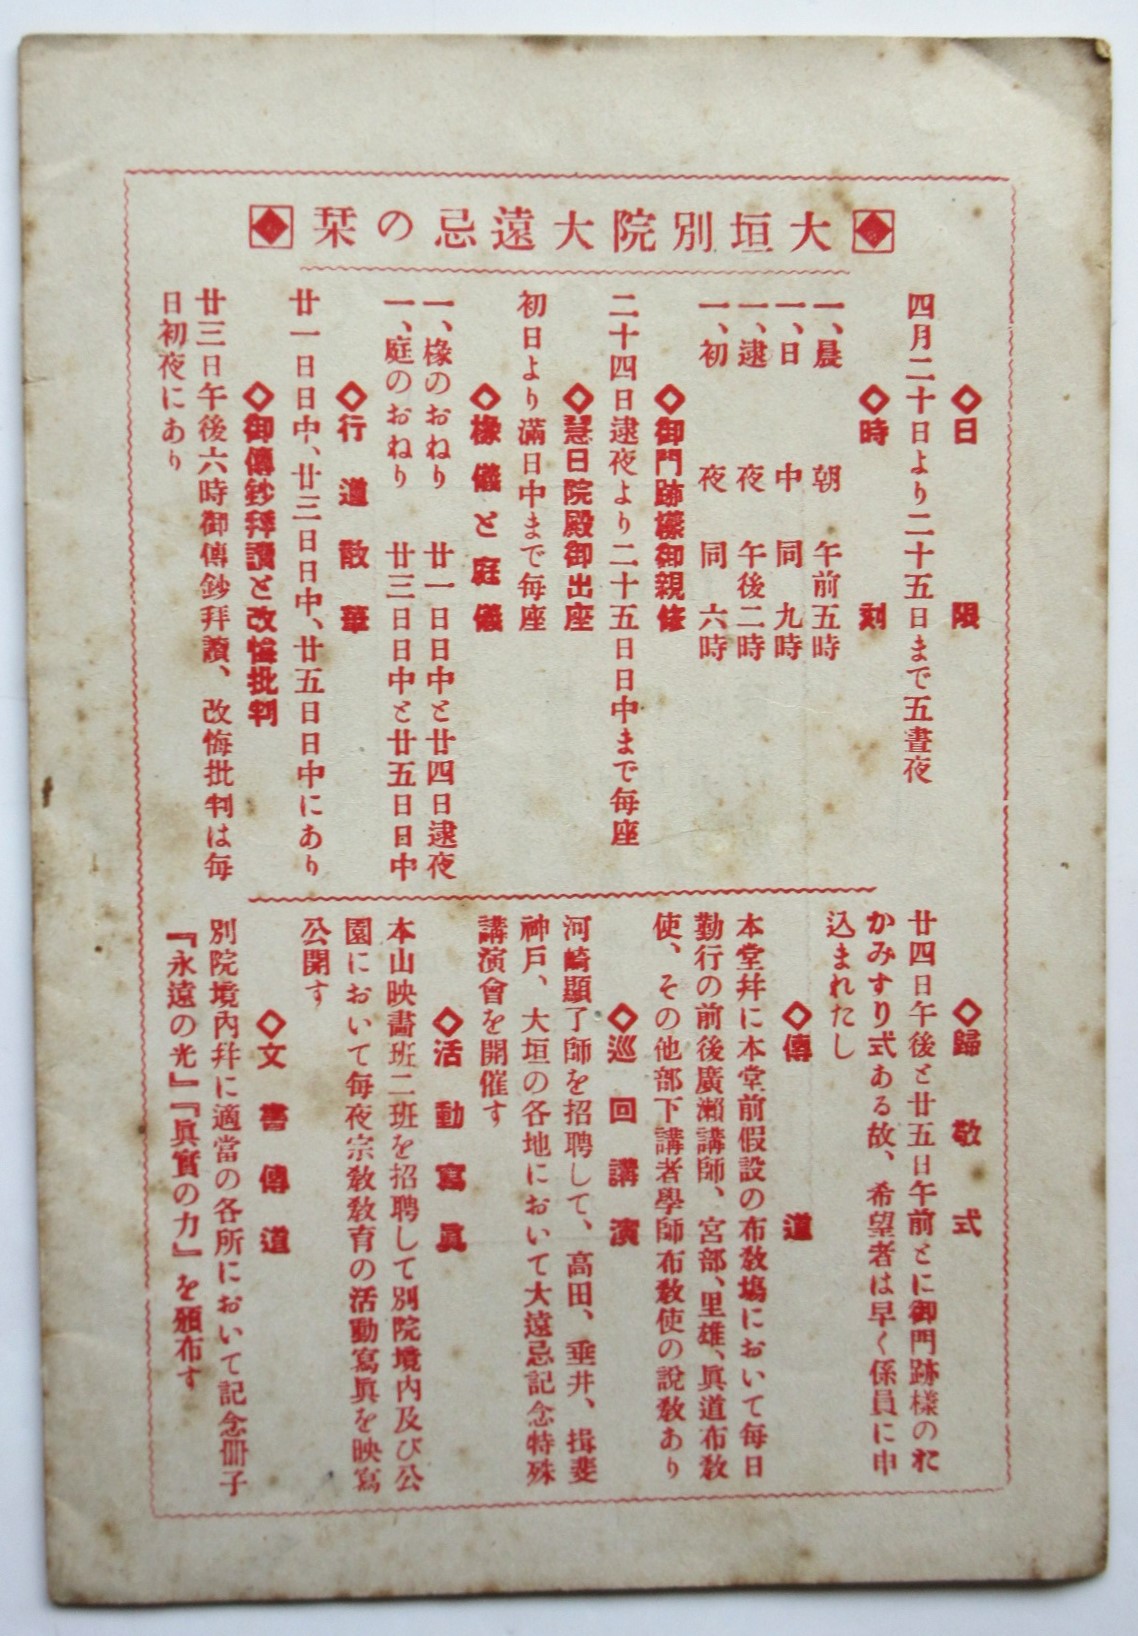 大垣別院大遠忌の栞
◇日限
四月二十日より二十五日まで五晝夜
◇時刻
一、晨朝 午前五時
一、日中 同九時
一、逮夜 午後二時
一、初夜 同六時
◇御門跡樣御親修
二十四日逮夜より二十五日日中まで毎座
◇慧日院殿御出座
初日より滿日中まで毎座
◇椽儀と庭儀
一、椽のおねり 廿一日日中と廿四日逮夜
一、庭のおねり 廿三日日中と廿五日日中
◇行道散華
廿一日日中、廿三日日中、廿五日日中にあり
◇御傳鈔拜讀と改悔批判
廿三日午後六時御傳鈔拜讀、改悔批判は毎
日初夜にあり
◇歸敬式
廿四日午後と廿五日午前とに御門跡樣のお
かみすり式ある故、希望者は早く係員に申
込まれたし
◇傳道
本堂幷に本堂前假設の布敎塲において毎日
勤行の前後廣瀨講師、宮部、里雄、眞道布敎
使、その他部下講者學師布敎使の說敎あり
◇巡回講演
河崎顯了師を招聘して、高田、垂井、揖斐
神戸、大垣の各地において大遠忌記念特殊
講演會を開催す
◇活動寫眞
本山映畵班二班を招聘して別院境內及び公
園において毎夜宗敎敎育の活動寫眞を映寫
公開す
◇文書傳道
別院境內幷に適當の各所において記念冊子
『永遠の光』『眞實の力』を頒布す